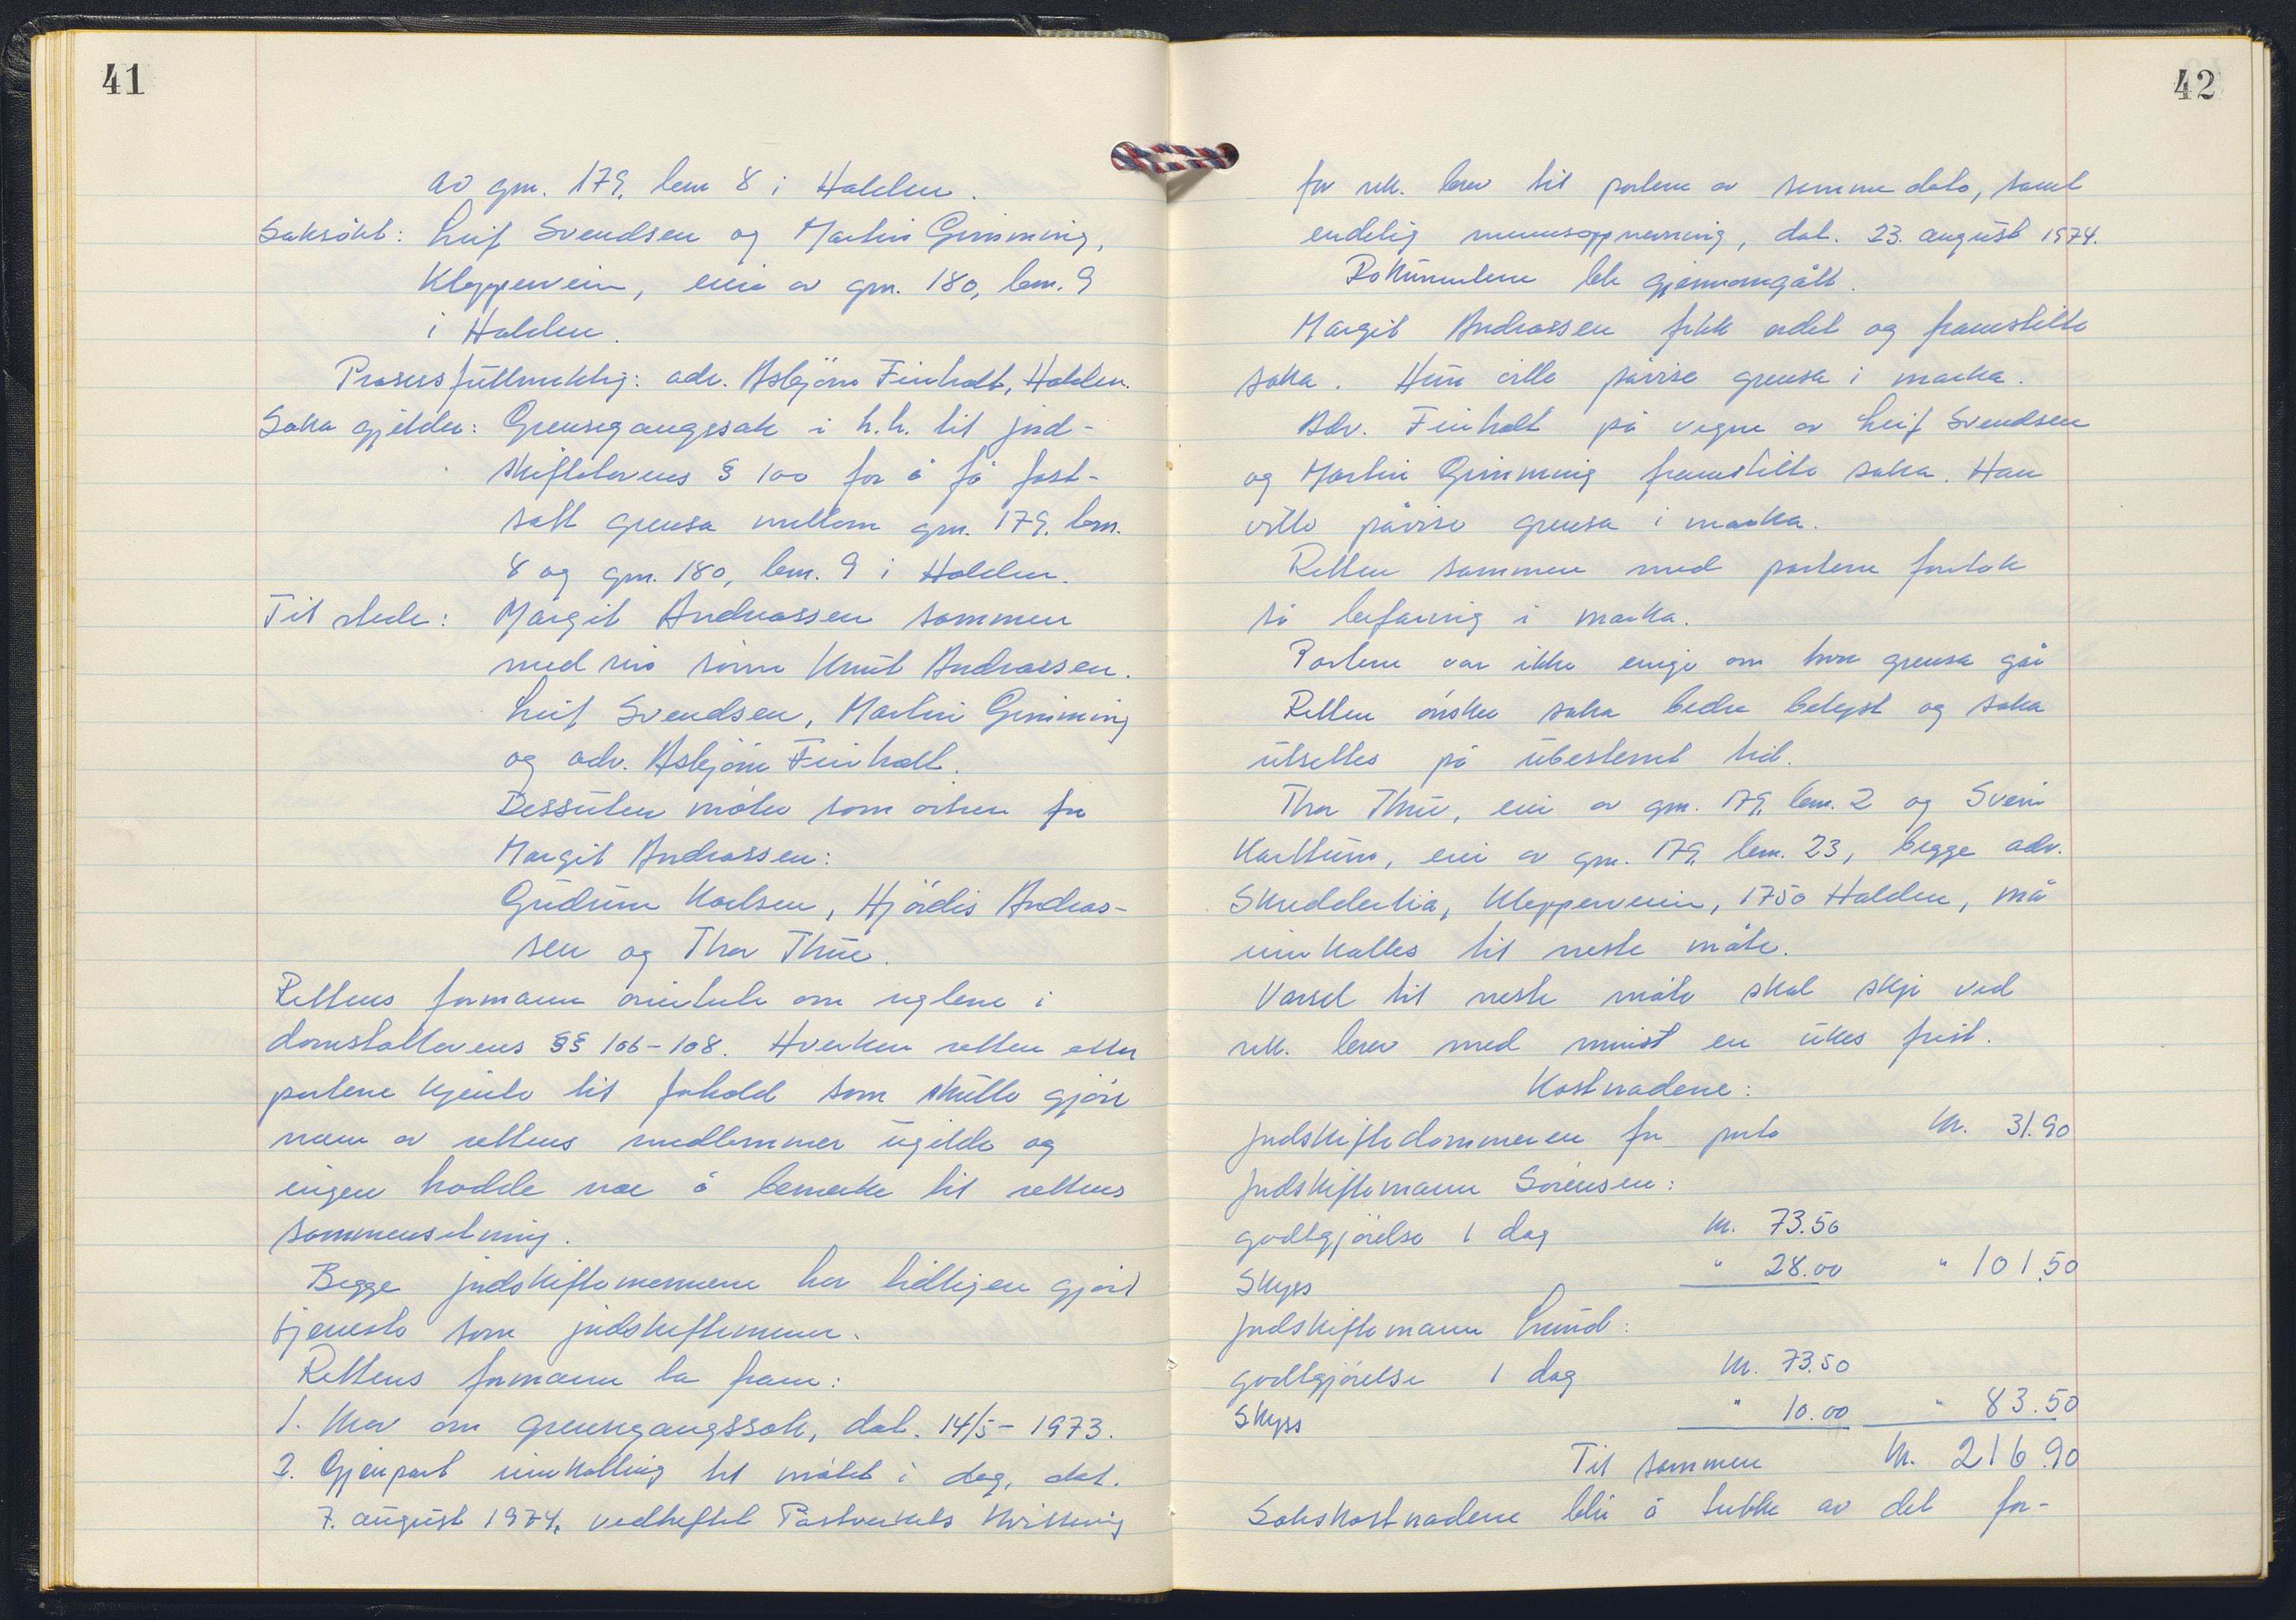 41
av gnr. 179, bnr 8 i Halden.
Saksøkt: Leif Svendsen og Martin Grimming,
Klepperveien, eier av gnr. 180, bnr. 9
i Halden.
Prosessfullmektig: adv. Asbjørn Finholt, Halden.
Saka gjelder: Grensegangssak i h.h. til jord-
skiftelovens § 100 for å få fast-
satt grensa mellom gnr. 179, bnr.
8 og gnr. 180, bnr. 9 i Halden.
Til stede: Margit Andreassen sammen
med sin sønn Knut Andreassen.
Leif Svendsen, Martin Grimming
og adv. Asbjørn Finholt.
Dessuten møter som vitner for
Margit Andreassen:
Gudrun Karlsen, Hjørdis Andreas-
sen og Thor Thue.
Rettens formann orienterte om reglene i
domstollovens §§ 106-108. Hverken retten eller
partene kjente til forhold som skulle gjøre
noen av rettens medlemmer ugilde og
ingen hadde noe å bemerke til rettens
sammensetning.
Begge jordskiftemennene har tidligere gjort
tjeneste som jordskiftemenn.
Rettens formann la fram:
1. Krav om grensegangssak, dat. 14/5-1973.
2. Gjenpart innkalling til møtet i dag, dat.
7. august 1974, vedheftet Postverkets kvittering
42
for rek. brev til partene av samme dato, samt
endelig mennsoppnevning, dat. 23. august 1974.
Dokumentene ble gjennomgått.
Margit Andreassen fikk ordet og framstilte
saka. Hun ville påvise grensa i marka.
Adv. Finholt på vegne av Leif Svendsen
og Martin Grimming framstilte saka. Han
ville påvise grensa i marka.
Retten sammen med partene foretok
så befaring i marka.
Partene var ikke enige om hvor grensa går
Retten ønsker saka bedre belyst og saka
utsettes på ubestemt tid.
Thor Thue, eier av gnr. 179, bnr. 2 og Svein
Karttum, eier av gnr. 179, bnr. 23, begge adr.
Skredderlia, Kleppervein, 1750 Halden, må
innkalles til neste møte.
Varsel til neste møte skal skje ved
rek. brev med minst en ukes frist.
Kostnadene:
Jordskiftedommeren for porto kr. 31.90
Jordskiftemann Sørensen:
godtgjørelse 1 dag kr. 73.50
Skyss " 28.00 " 101.50
Jordskiftemann Lund:
godtgjørelse 1 dag kr. 73.50
Skyss " 10.00 " 83.50
Til sammen kr. 216.90
Sakskostnadene blir å trekke av det for-